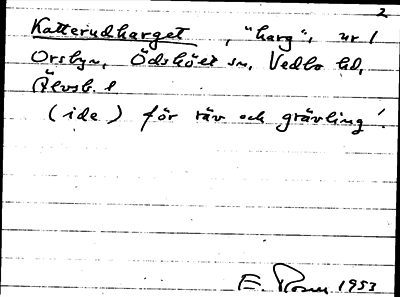 2
Katterudharget, "harg", nr 1
Orsbyn, Ödskölt sn, Vedbo hd,
Älvsb. l
(ide) för räv och grävling!
E. Rosen 1953